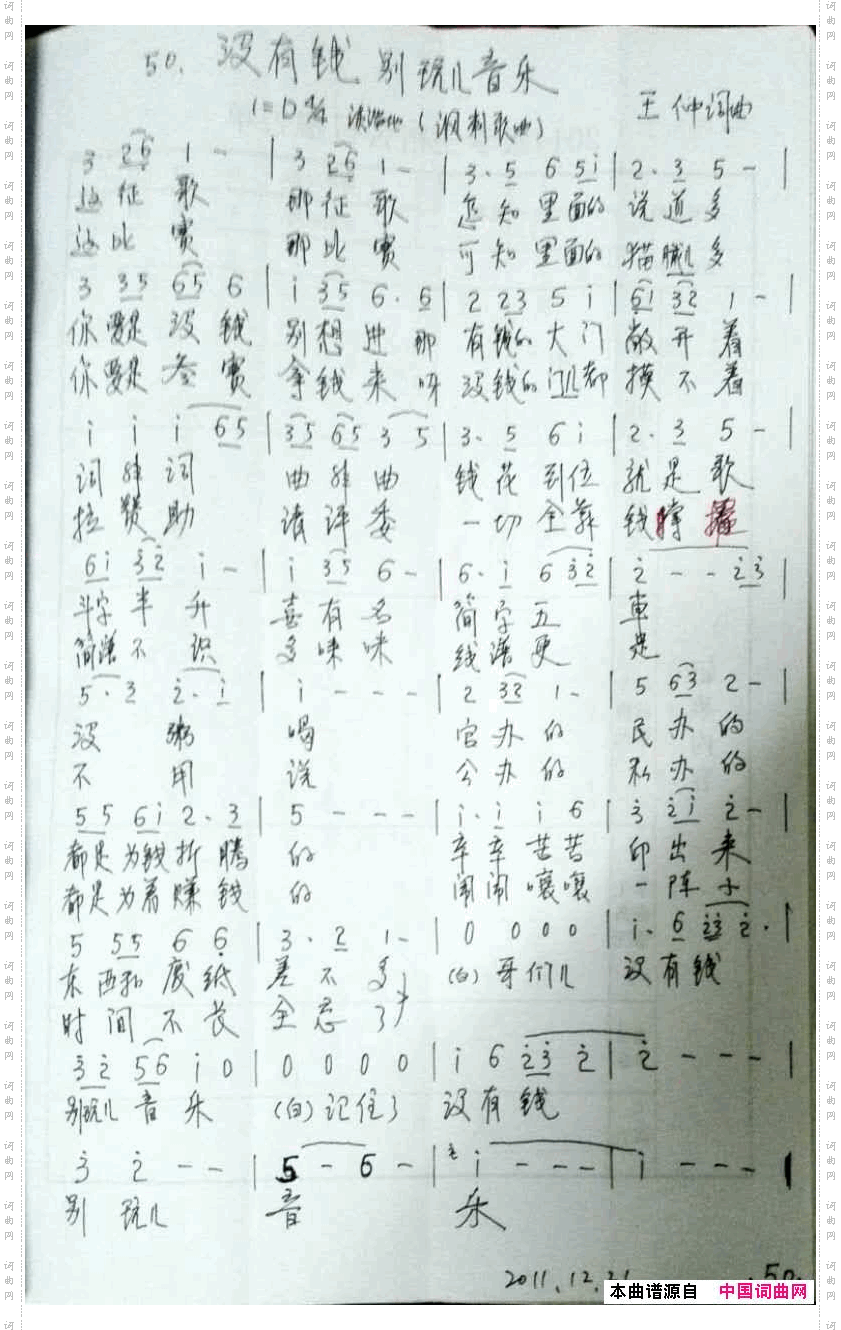 50. 没有钱别玩儿音乐
1=D 4/4 诙谐地（讽刺歌曲） 王仲词曲
3 2 6 1 - | 3 2 6 1 - | 3· 5 6 5 i | 2· 3 5 - |
这征歌 那征歌 怎知里面的 说道多
这比赛 那比赛 可知里面的 猫腻儿多
3 3 5 6 5 6 | i 3 5 6· 6 | 2 2 3 5 i | 6 i 3 2 1 - |
你要是没钱 别想进那 有钱的大门 敞开着
你要是参赛 拿钱来呀 没钱的门儿都摸不着
i i i 6 5 | 3 5 6 5 3 5 | 3· 5 6 i | 2· 3 5 - |
词 词 曲 曲 钱花到位 就是歌
拉赞助 请评委 一切全靠 钱
6 i 3 2 i - | i 3 5 6 - | 6· i 6 3 2 | 2 - - 2 3 |
斗字半升 喜有名 简字五车
简谱不识 多味 线谱更是
5· 3 2· i | i - - - | 2 3 2 1 - | 5 6 3 2 - |
没粥喝 官办的 民办的
不用说 公办的 私办的
5 5 6 i 2· 3 | 5 - - - | i· i i 6 | 3 2 i 2 - |
都是为钱折腾的 辛辛苦苦 印出来
都是为着赚钱的 闹闹嚷嚷 一阵子
5 5 5 6 6 | 3· 2 1 - | 0 0 0 0 | i· 6 2 3 2· |
东西和废纸差不多 (白) 哥们儿 没有钱
时间不长全忘了
3 2 5 6 i 0 | 0 0 0 0 | i 6 2 3 2 | 2 - - - |
别玩儿音乐 (白) 记住了 没有钱
3 2 - - | 5 - 6 - | i - - - | i - - - |
别玩儿音乐
2011.12.21 .50.
本曲谱源自 中国词曲网
词曲网